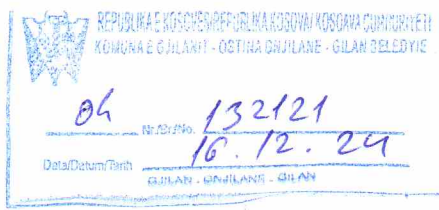 REPUBLIKA E KOSOVËS/REPUBLIKA KOSOVA/KOSOVA CUMHURİYETİ
KOMUNA E GJILANIT - OPŠTINA GNJILANE - GILAN BELEDYIE
04 Nr./Br./No. 132121
Data/Datum/Tarih 16.12.24
GJILAN - GNJILANE - GILAN